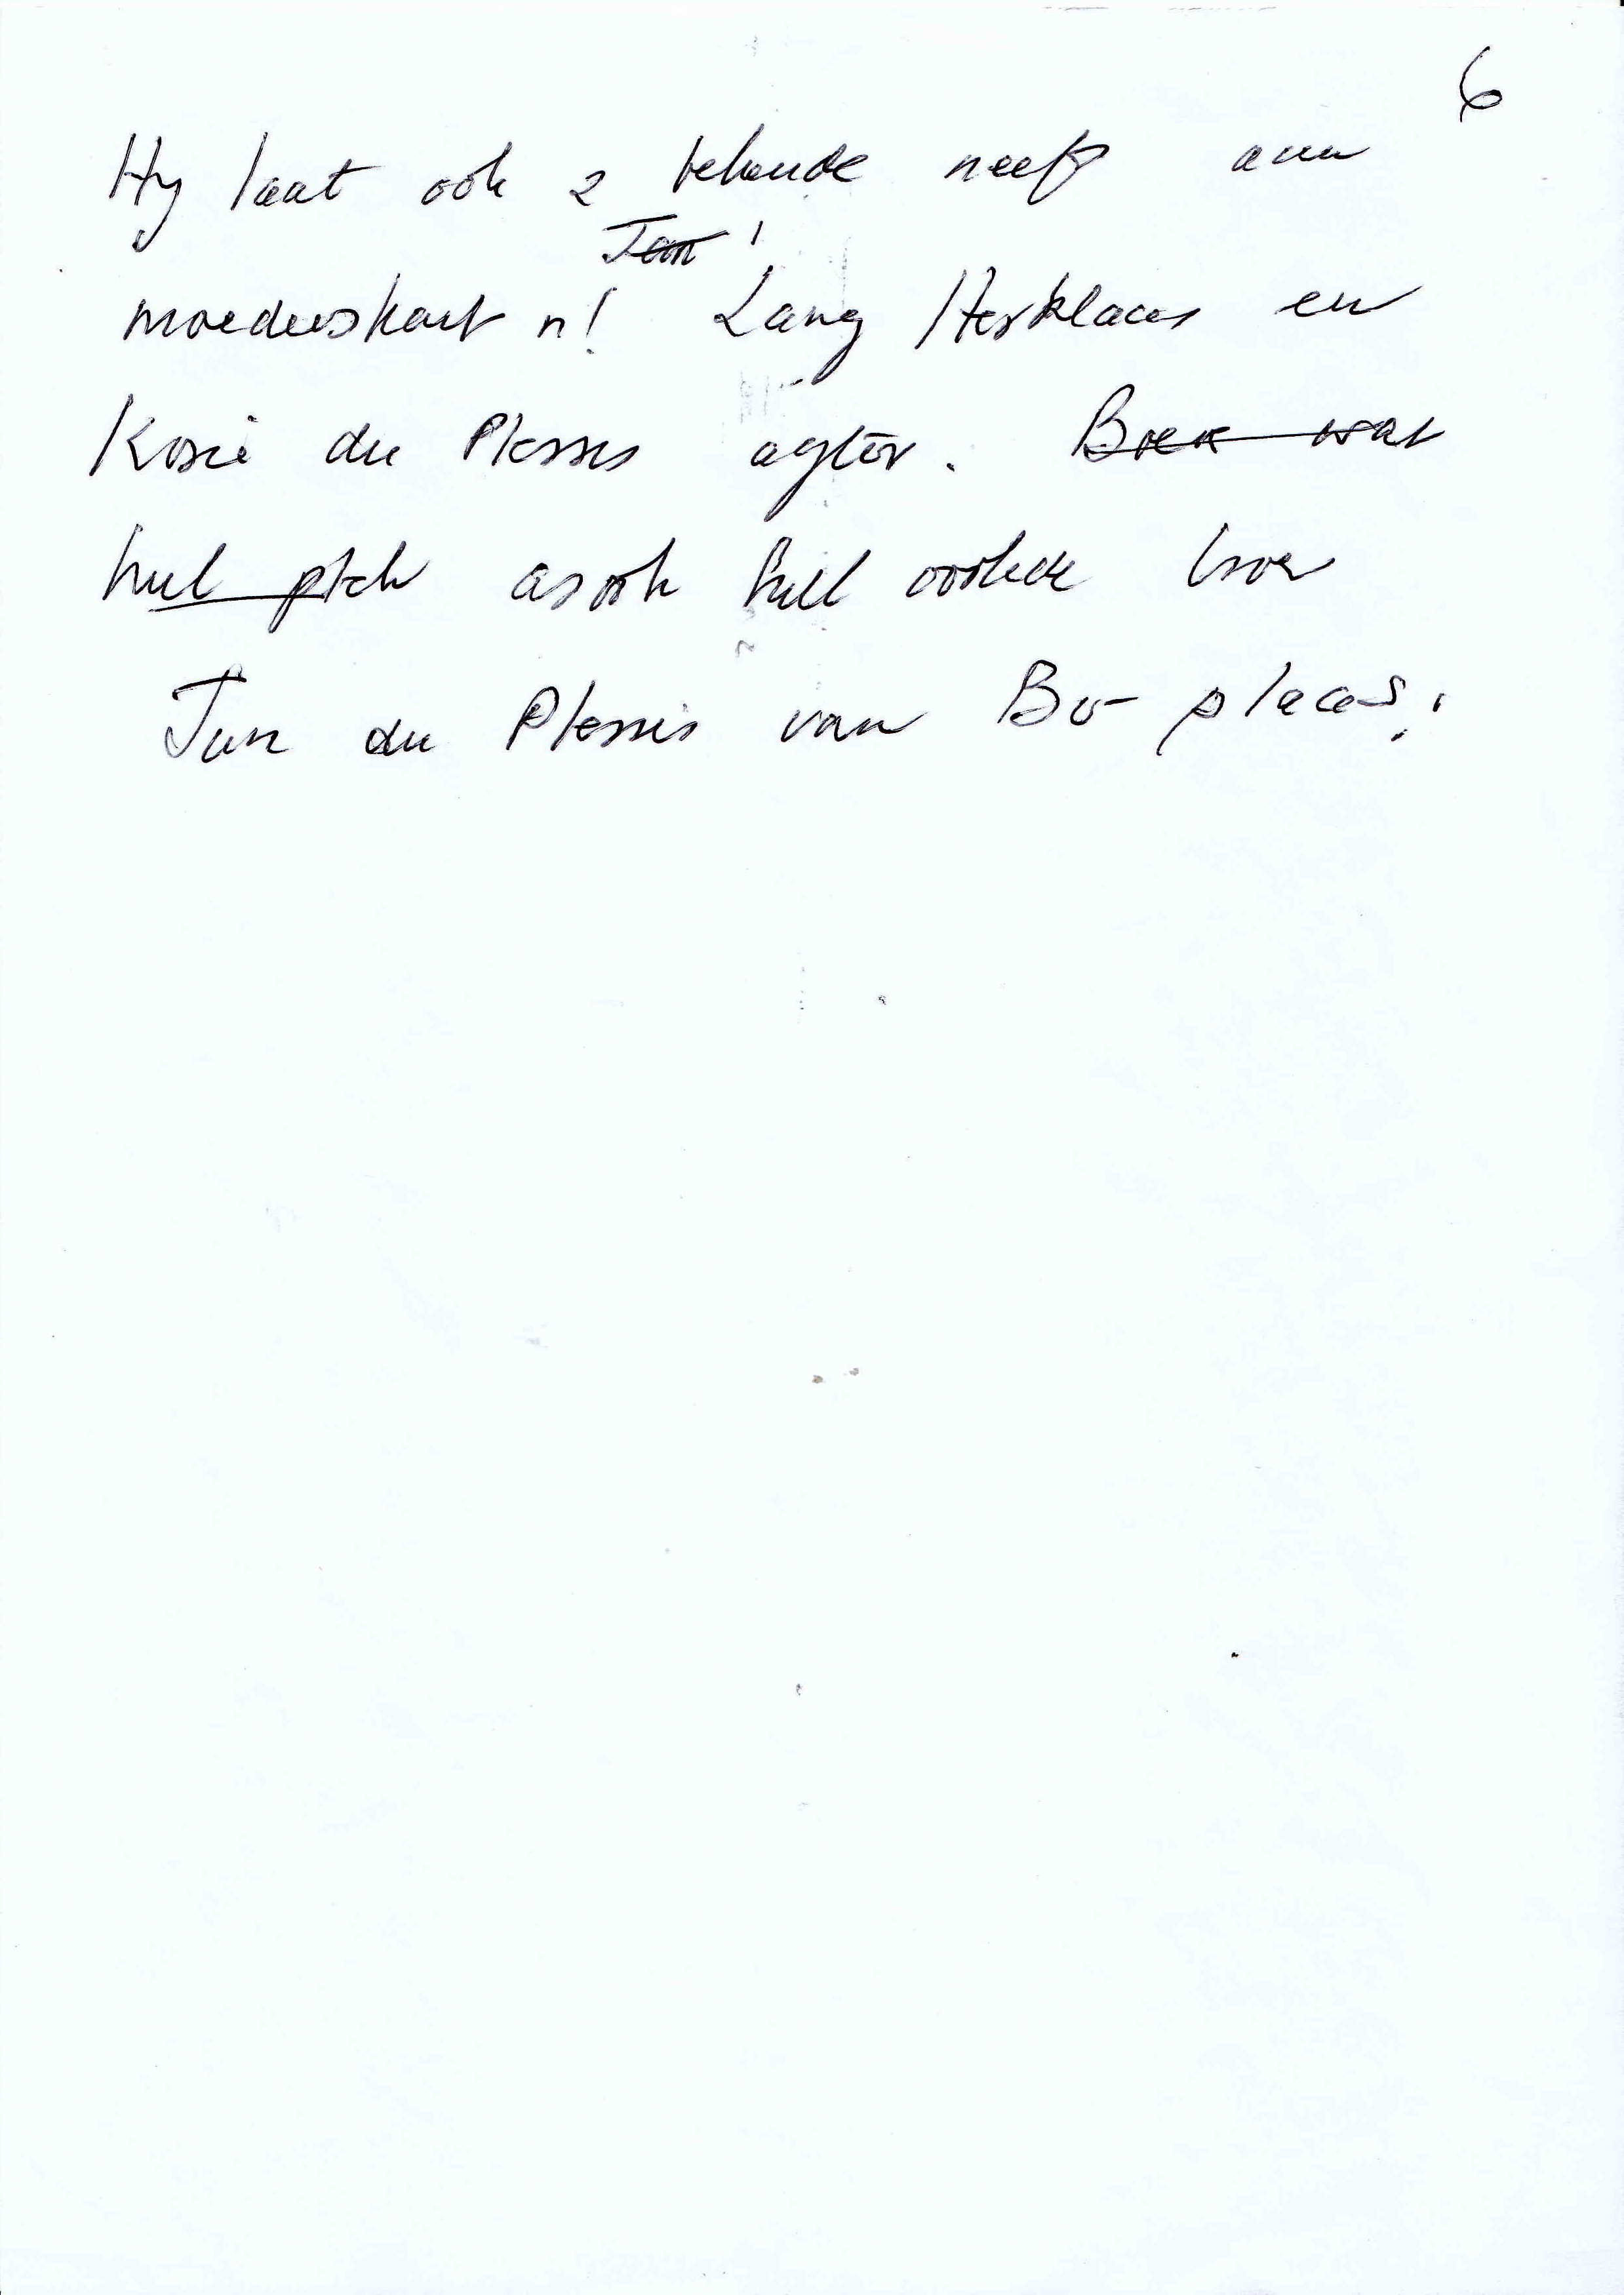 6
Hy laat ook 2 bekende neefs aan
Jan
moederskant nl Lang Herklaas en
Kosie du Plessis agter. Boek wat
hul asook hul oorlede broer
Jan du Plessis van Bo-plaas.